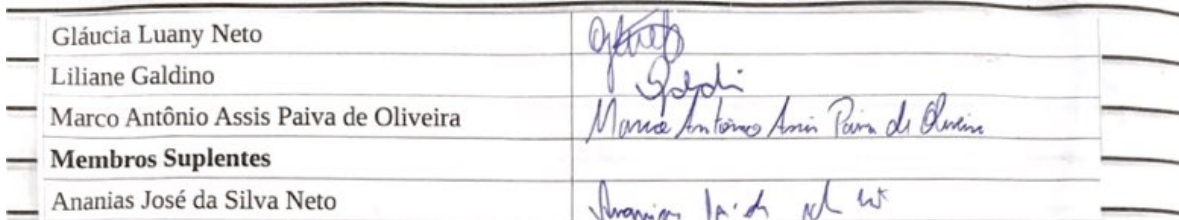 Gláucia Luany Neto
Liliane Galdino
Marco Antônio Assis Paiva de Oliveira Marco Antônio Assis Paiva de Oliveira
Membros Suplentes
Ananias José da Silva Neto Ananias